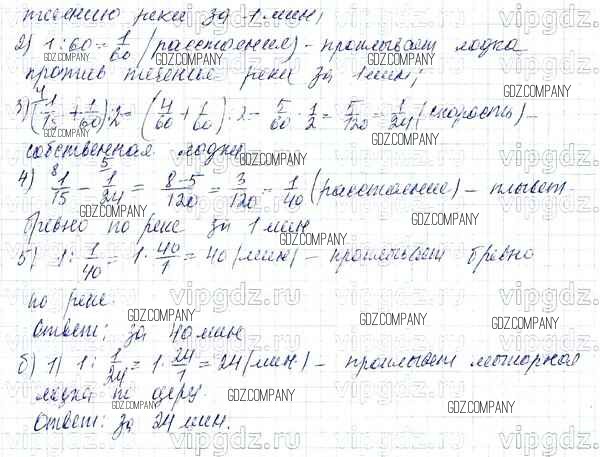 течению реки за 1 мин;
2) 1 : 60 = 1/60 (расстояния) – проплывает лодка
против течения реки за 1 мин;
3) (1/15 + 1/60) : 2 = (4/60 + 1/60) : 2 = 5/60 · 1/2 = 5/120 = 1/24 (скорость) –
собственная лодки
4) 1/15 - 1/24 = 8-5/120 = 3/120 = 1/40 (расстояние) – плывет
бревно по реке за 1 мин
5) 1 : 1/40 = 1 · 40/1 = 40 (мин) – проплывает бревно
по реке.
Ответ: за 40 мин
б) 1) 1 : 1/24 = 1 · 24/1 = 24 (мин) – проплывает моторная
лодка по озеру.
Ответ: за 24 мин.
vipgdz.ru
GDZ.COMPANY